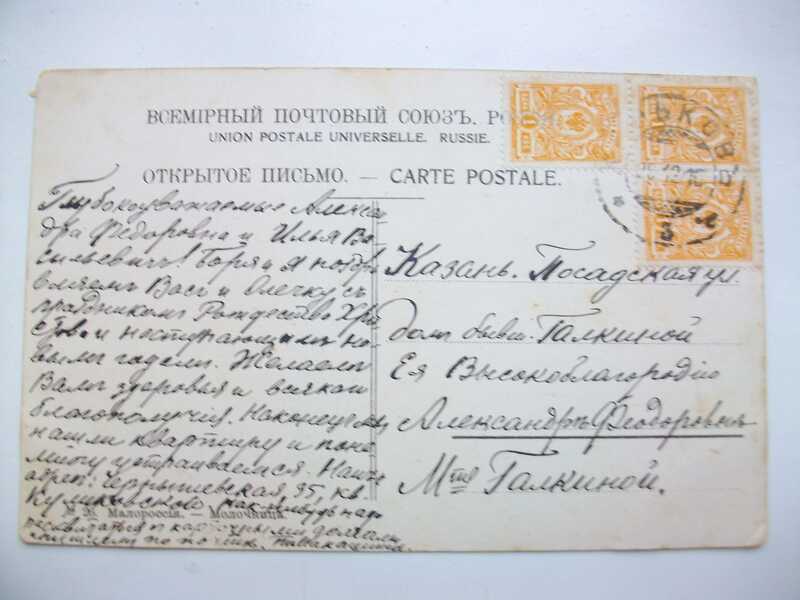 ВСЕМІРНЫЙ ПОЧТОВЫЙ СОЮЗЪ.
UNION POSTALE UNIVERSELLE. RUSSIE.
ОТКРЫТОЕ ПИСЬМО. — CARTE POSTALE.
Глубокоуважаемые Алексан
дра Федоровна и Илья Ва
сильевич! Боря и я поздра
вляем Васъ и Олечку съ
праздникомъ Рождество Хри
стово и наступающимъ но
вымъ годомъ. Желаемъ
Вамъ здоровья и всякаго
благополучія. Наконец мы
нашли квартиру и поне
многу устраиваемся. Нашъ
адрес: Чернышевская 95, кв.
Куликовскаго
№ 36. Малороссія. — Молочница.
Казань. Посадская ул.
домъ бывш. Галкиной
Ея Высокоблагородію
Александрѣ Феодоровнѣ
Галкиной.